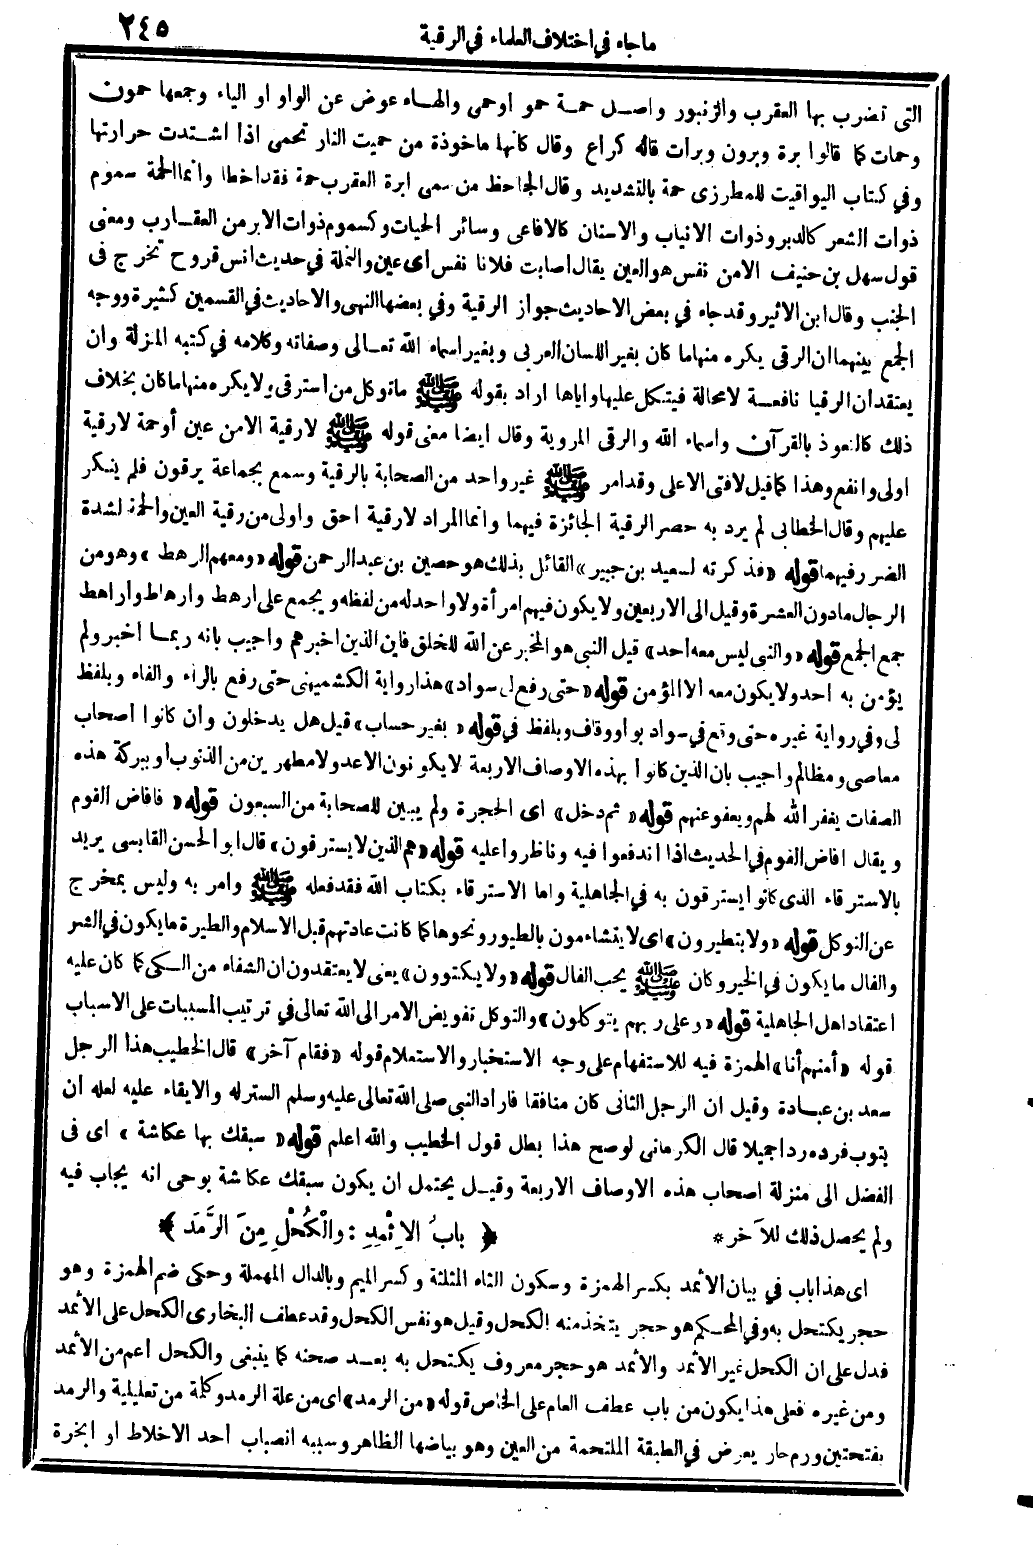 ماجاء في اختلاف العلماء في الرقية ٢٤٥
التى تضرب بها العقرب والزنبور واصل حمة حمو اوحمى والهاء عوض عن الواو او الياء وجمعها حمون
وحمات كما قالوا برة وبرون وبرات قاله كراع وقال كانها ماخوذة من حميت النار تحمى اذا اشتدت حرارتها
وفي كتاب اليواقيت للمطرزى حمة بالتشديد وقال الجاحظ من سمى ابرة العقرب حمة فقد اخطا وانما الحمة سموم
ذوات الشعر كالدبر وذوات الانياب والاسنان كالافاعى وسائر الحيات وكسموم ذوات الابر من العقارب ومعنى
قول سهل بن حنيف الامن نفس هو العين يقال اصابت فلانا نفس اى عين والنملة في حديث انس قروح تخرج فى
الجنب وقال ابن الاثير وقد جاء في بعض الاحاديث جواز الرقية وفي بعضها النهى والاحاديث في القسمين كثيرة ووجه
الجمع بينهما ان الرقى يكره منها ما كان بغير اللسان العربى وبغير اسماء الله تعالى وصفاته وكلامه في كتبه المنزلة وان
يعتقد أن الرقيا نافعة لا محالة فيتكل عليها واياها اراد بقوله ﷺ ماتوكل من استرقى ولا يكره منها ما كان بخلاف
ذلك كالتعوذ بالقرآن واسماء الله والرقى المروية وقال ايضا معنى قوله ﷺ لارقية الامن عين أوحمة لارقية
اولى وانفع وهذا كما قيل لافتى الاعلى وقد امر ﷺ غير واحد من الصحابة بالرقية وسمع بجماعة يرقون فلم ينكر
عليهم وقال الخطابى لم يرد به حصر الرقية الجائزة فيهما وانما المراد لارقية احق واولى من رقية العين والحمة لشدة
الضرر فيهما قوله «فذكرته لسعيد بن جبير» القائل بذلك هو حصين بن عبد الرحمن قوله «ومعهم الرهط» وهو من
الرجال مادون العشرة وقيل الى الاربعين ولا يكون فيهم امرأة ولا واحد له من لفظه ويجمع على ارهط وارهاط وأراهط
جمع الجمع قوله «والنبى ليس معه أحد» قيل النبى هو المخبر عن الله للخلق فاين الذين اخبرهم واجيب بانه ربما اخبر ولم
يؤمن به احد ولا يكون معه الا المؤمن قوله «حتى رفع لى سواد» هذا رواية الكشميهنى حتى رفع بالراء والفاء وبلفظ
لى وفى رواية غيره حتى وقع فى سواد بواو وقاف وبلفظ في قوله «بغير حساب» قيل هل يدخلون وان كانوا أصحاب
معاصى ومظالم واجيب بان الذين كانوا بهذه الاوصاف الاربعة لايكونون الاعدولا مطهرين من الذنوب أو ببركة هذه
الصفات يغفر الله لهم ويعفو عنهم قوله «ثم دخل» اى الحجرة ولم يبين للصحابة من السبعون قوله «فافاض القوم
ويقال افاض القوم في الحديث اذا اندفعوا فيه وناظروا عليه قوله «هم الذين لا يسترقون» قال ابو الحسن القابسى يريد
بالاسترقاء الذى كانوا يسترقون به في الجاهلية واما الاسترقاء بكتاب الله فقد فعله ﷺ وامر به وليس بمخرج
عن التوكل قوله «ولا يتطيرون» اى لا يتشاءمون بالطيور ونحوها كما كانت عادتهم قبل الاسلام والطيرة ما يكون في الشر
والفال ما يكون في الخير وكان ﷺ يحب الفال قوله «ولا يكتوون» يعنى لا يعتقدون ان الشفاء من الكى كما كان عليه
اعتقاد اهل الجاهلية قوله «وعلى ربهم يتوكلون» والتوكل تفويض الامر الى الله تعالى في ترتيب المسببات على الاسباب
قوله «أمنهم أنا» الهمزة فيه للاستفهام على وجه الاستخبار والاستعلام قوله «فقام آخر» قال الخطيب هذا الرجل
سعد بن عبادة وقيل ان الرجل الثانى كان منافقا فاراد النبى صلى الله تعالى عليه وسلم الستر له والابقاء عليه لعله أن
يتوب فرده ردا جميلا قال الكرمانى لو صح هذا بطل قول الخطيب والله اعلم قوله «سبقك بها عكاشة» اى فى
الفضل الى منزلة اصحاب هذه الاوصاف الاربعة وقيل يحتمل ان يكون سبقك عكاشة بوحى انه يجاب فيه
ولم يحصل ذلك للآخر *
﴿ بابُ الإِثْمِدِ : والْكُحْلِ مِنَ الرَّمَدِ ﴾
اى هذا باب في بيان الأثمد بكسر الهمزة وسكون الثاء المثلثة وكسر الميم وبالدال المهملة وحكى ضم الهمزة وهو
حجر يكتحل به وفي المحكم هو حجر يتخذ منه الكحل وقيل هو نفس الكحل وقد عطف البخارى الكحل على الأثمد
فدل على ان الكحل غير الأثمد والأثمد هو حجر معروف يكتحل به بعد صحنه كما ينبغى والكحل أعم من الأثمد
ومن غيره فعلى هذا يكون من باب عطف العام على الخاص قوله «من الرمد» اى من علة الرمد وكلمة من تعليلية والرمد
بفتحتين ورم حار يعرض في الطبقة الملتحمة من العين وهو بياضها الظاهر وسببه انصباب أحد الاخلاط او ابخرة